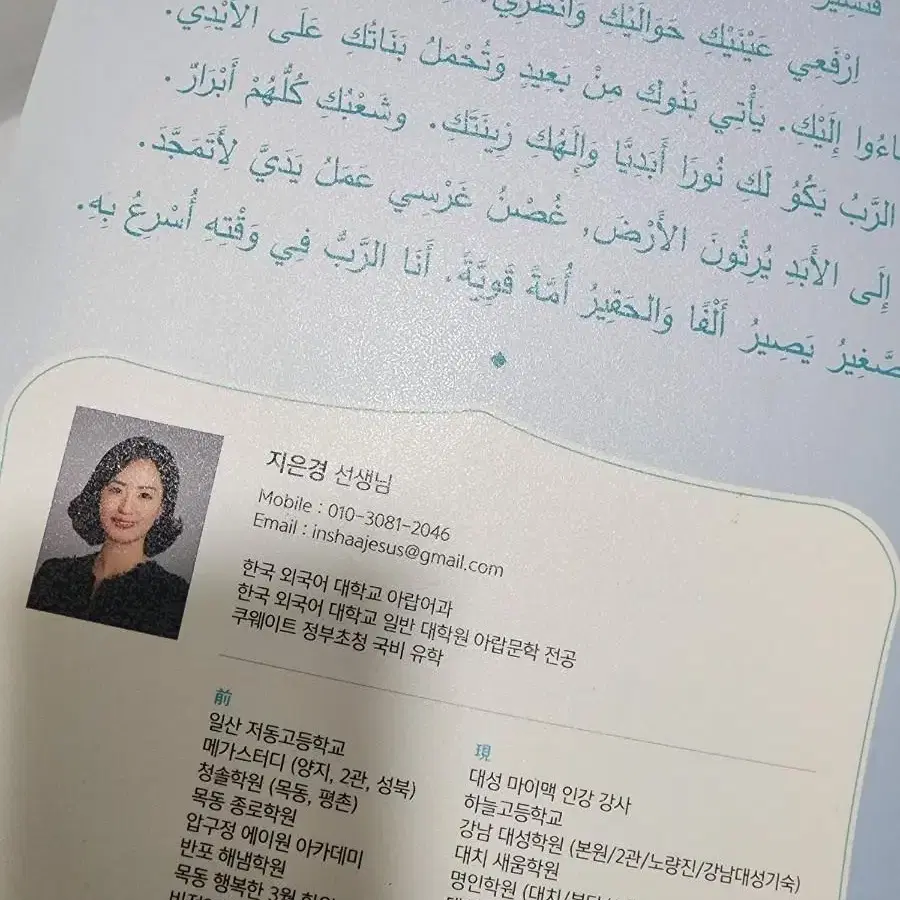 فَتَسْتَنِيرُ
اِرْفَعِي عَيْنَيْكِ حَوَالَيْكِ وَانْظُرِي.
إِلَيْكِ. يَأْتِي بَنُوكِ مِنْ بَعِيدٍ وَتُحْمَلُ بَنَاتُكِ عَلَى الأَيْدِي.
الرَّبُ يَكُوُ لَكِ نُورًا أَبَدِيًّا وَإِلَهُكِ زِينَتَكِ. وشَعْبُكِ كُلُّهُمْ أَبْرَارٌ.
إِلَى الأَبَدِ يُرِثُونَ الأَرْضَ, غُصْنُ غَرْسِي عَمَلُ يَدَيَّ لأَتَمَجَّدَ.
يَصِيرُ أَلْفًا وَالحَقِيرُ أُمَّةً قَوِيَّةً. أَنَا الرَّبُّ فِي وَقْتِهِ أُسْرِعُ بِهِ.
지은경 선생님
Mobile : 010-3081-2046
Email : inshaajesus@gmail.com
한국 외국어 대학교 아랍어과
한국 외국어 대학교 일반 대학원 아랍문학 전공
쿠웨이트 정부초청 국비 유학
前
일산 저동고등학교
메가스터디 (양지, 2관, 성북)
청솔학원 (목동, 평촌)
목동 종로학원
압구정 에이원 아카데미
반포 해냄학원
목동 행복한 3월
現
대성 마이맥 인강 강사
하늘고등학교
강남 대성학원 (본원/2관/노량진/강남대성기숙)
대치 새움학원
명인학원